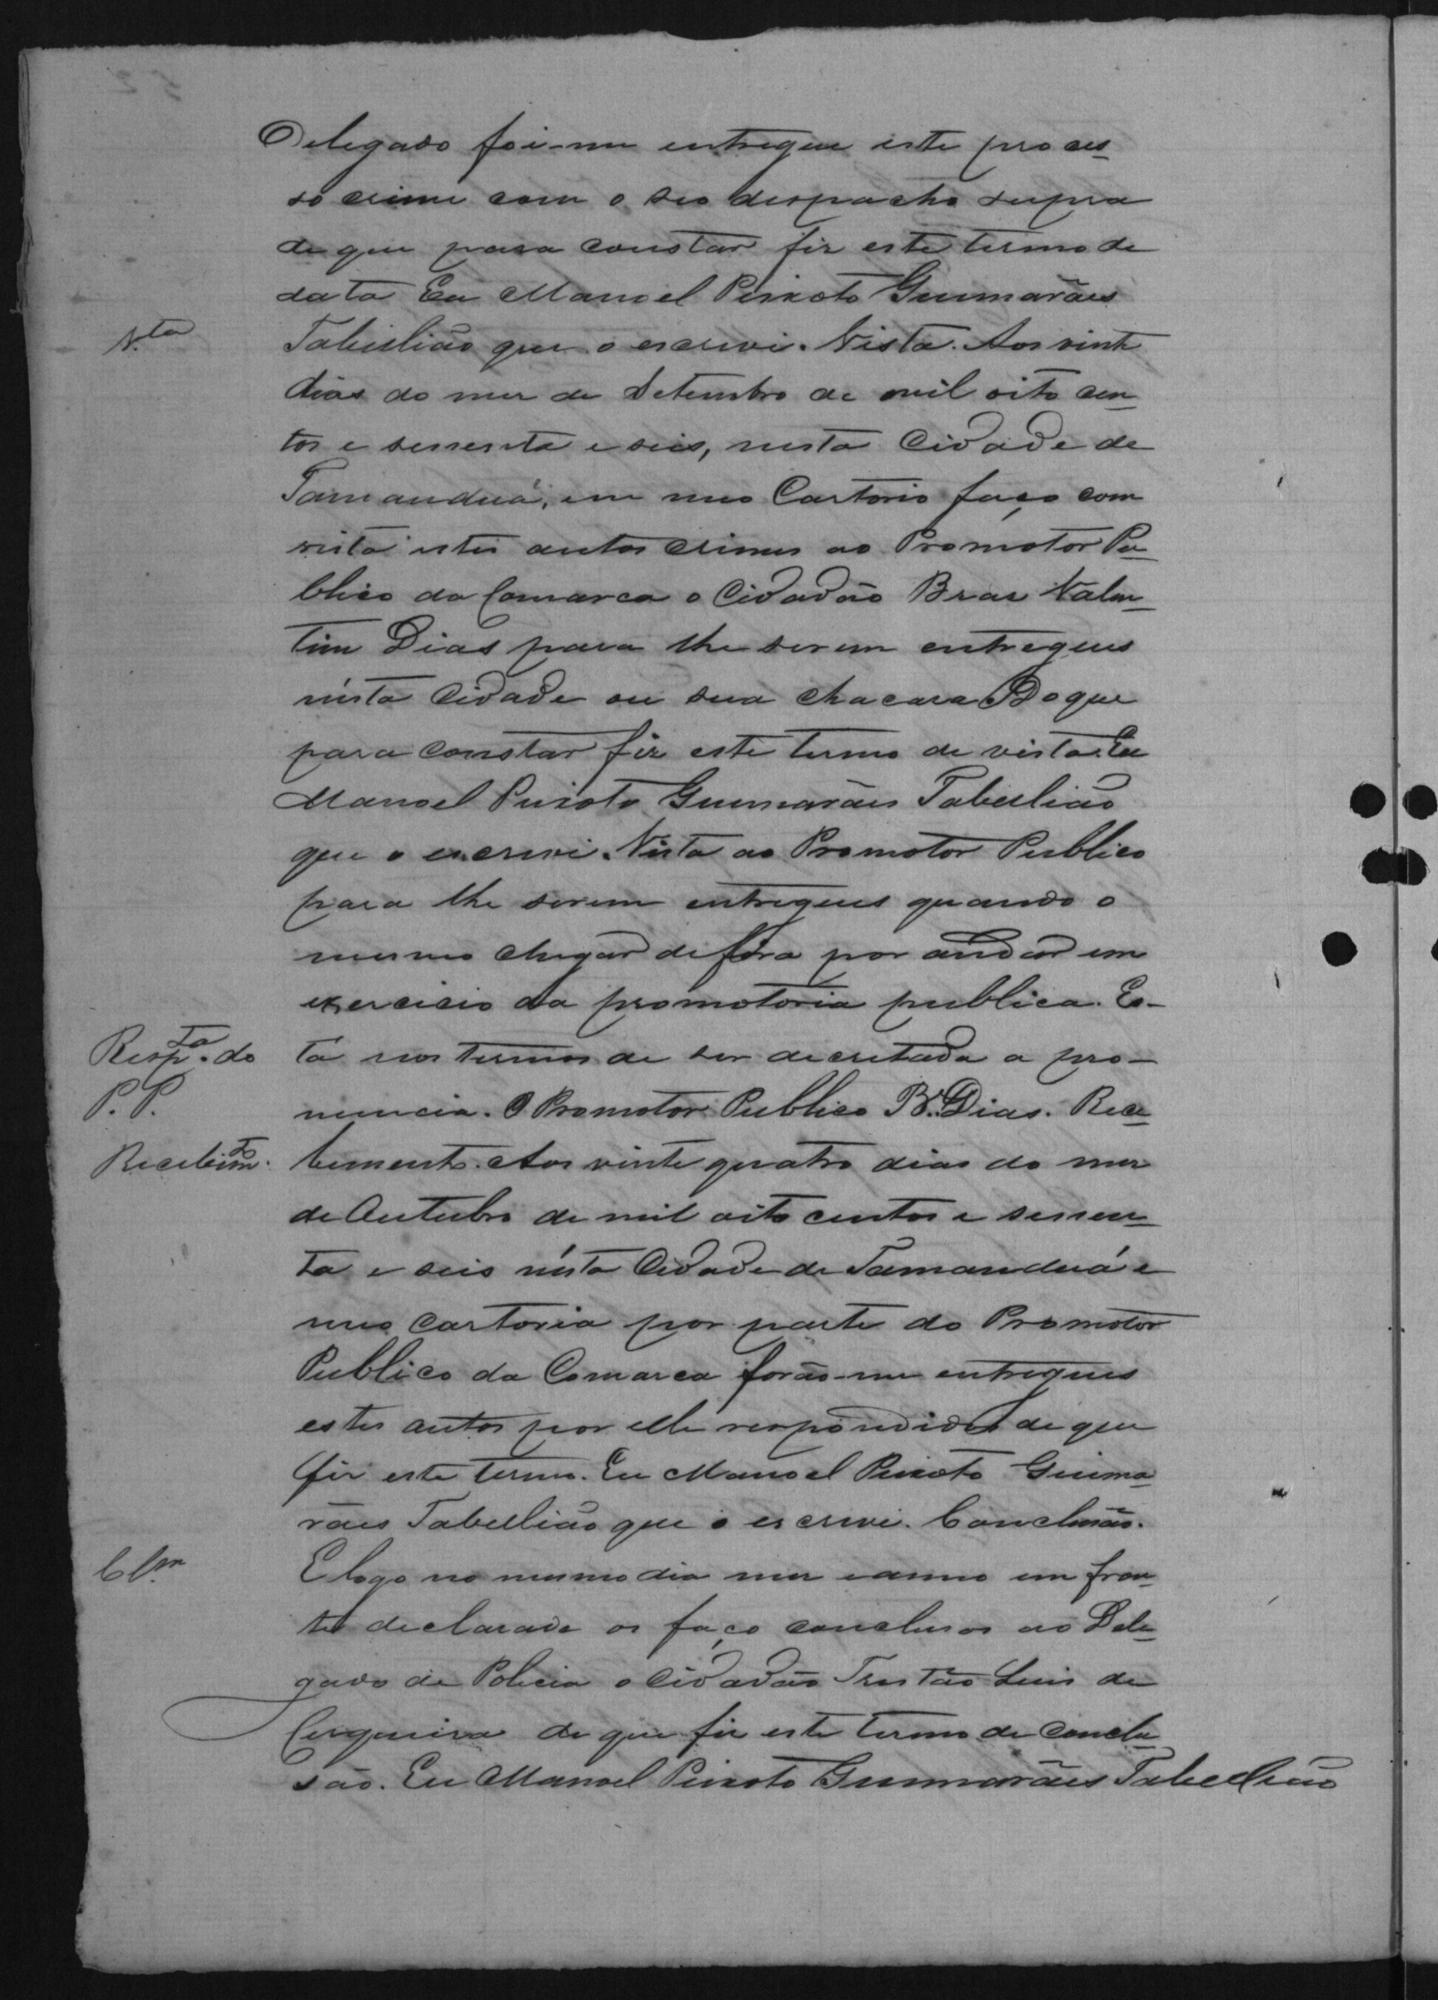 Delegado foi-me entregue este proces-
so crime com o seo despacho supra
de que para constar fiz este termo de
data Eu Manoel Peixoto Guimarães
V.ta
Tabellião que o escrevi. Vista. Aos vinte
dias do mez de Setembro de mil oito cen-
tos e sessenta e seis, nesta Cidade de
Tamanduá, em meo Cartorio faço com
vista estes autos crimes ao Promotor Pu-
blico da Comarca o Cidadão Bras Valen-
tim Dias para lhe serem entregues
nésta Cidade ou sua chacara Do que
para constar fiz este termo de vista. Eu
Manoel Peixoto Guimarães Tabellião
que o escrevi. Vista ao Promotor Publico
para lhe serem entregues quando o
mesmo chegar de fóra por andar em
exercicio da promotoria publica. Es-
Resp.ta do
tá nos termos de ser decretada a pro-
P. P.
nuncia. O Promotor Publico B. V. Dias. Rece-
Recebim.to
bimento. Aos vinte quatro dias do mez
de Outubro de mil oito centos e sessen-
ta e seis nésta Cidade de Tamanduá e
meo cartorio por parte do Promotor
Publico da Comarca forão-me entregues
estes autos por elle respondidos de que
fiz este termo. Eu Manoel Peixoto Guima-
rães Tabellião que o escrevi. Conclusão.
Cl.m
E logo no mesmo dia mez e anno em fron-
te declarado os faço conclusos ao Dele-
gado de Policia o Cidadão Tristão Luis de
Cerqueira de que fiz este termo de conclu-
são. Eu Manoel Peixoto Guimarães Tabellião